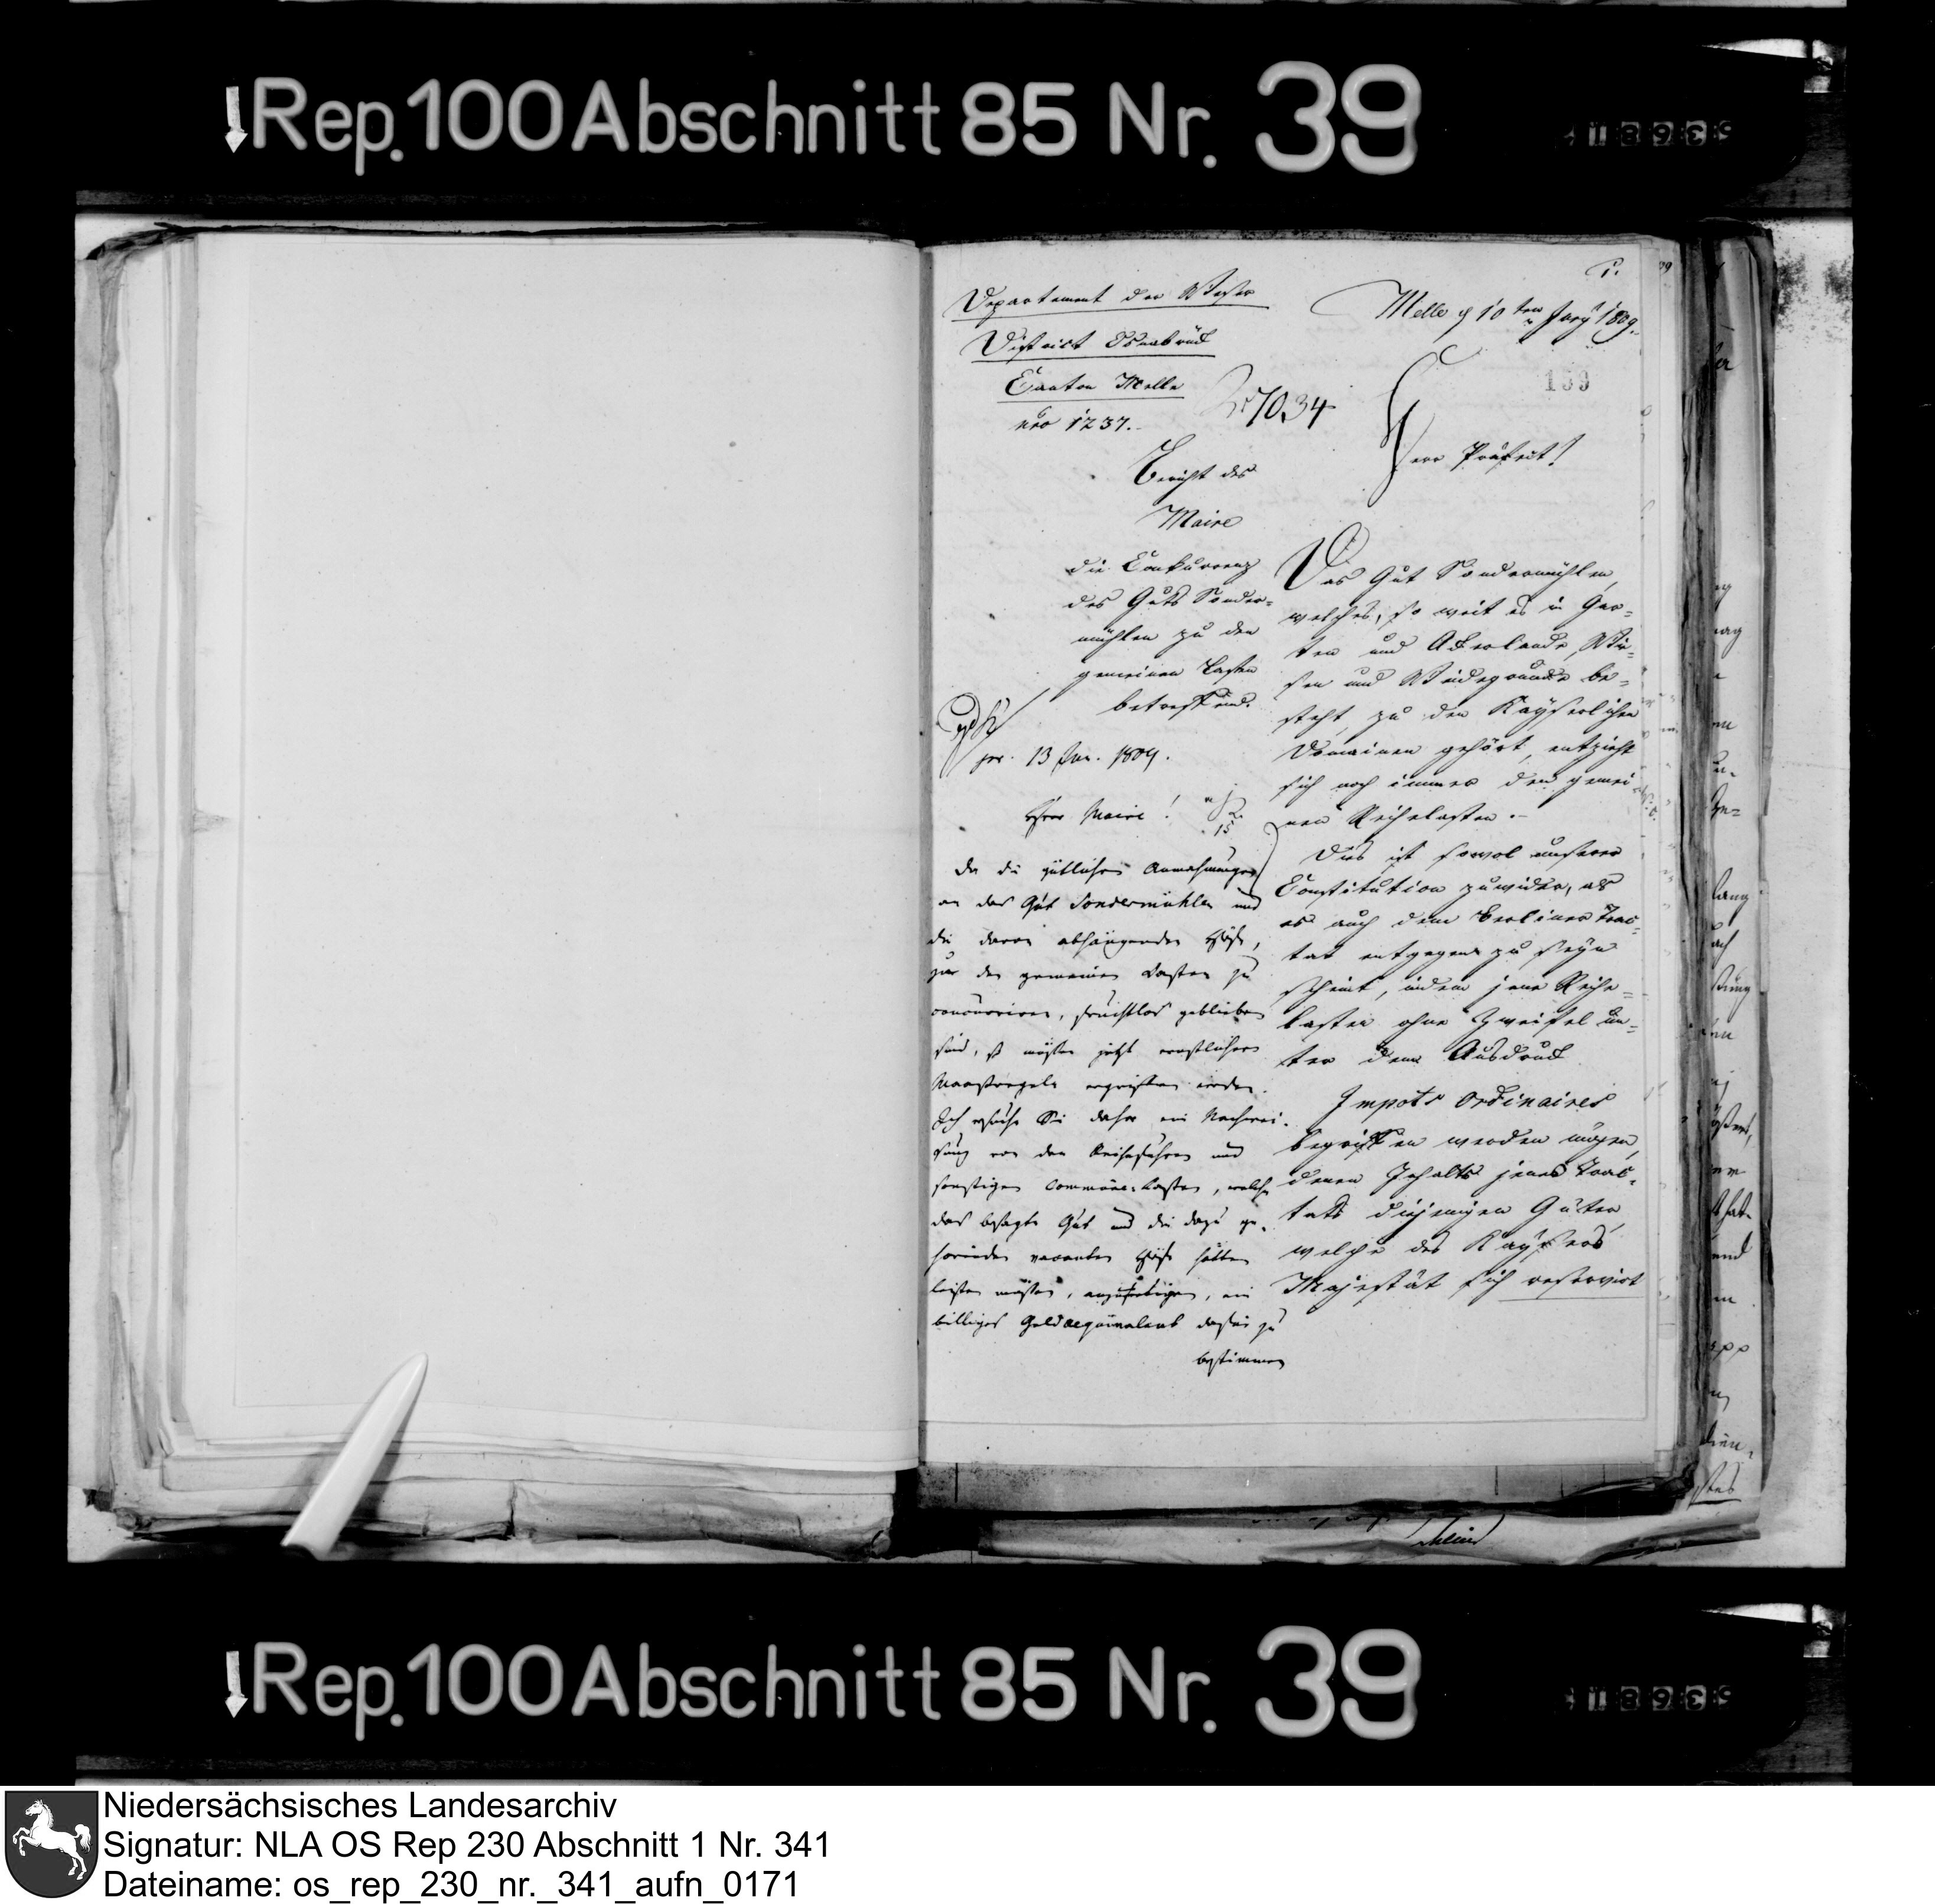 Rep. 100 Abschnitt 85 Nr. 39
Departement der Weser
District Osnabrück
Canton Melle
nro 1237.
7034
Bericht des
Maire
die Conkurrenz
des Guts Sonder-
mühlen zu den
gemeinen Lasten
betreffend.
pr. 13 Jan. 1809.
Herr Maire!
Da die gütlichen Anmahnungen
an das Gut Sondermühlen und
die davon abhängenden Höfe,
zur den gemeinen Lasten zu
concurriren, fruchtlos geblieben
sind, so müssen jetzt ernstlichere
Maasregeln ergriffen werden.
Ich ersuche Sie daher ein Nachwei-
sung von den Reihefuhren und
sonstigen Commüne-Lasten, welche
das besagte Gut und die dazu ge-
hörenden vacanten Höfe hätten
leisten müssen, anzufertigen, ein
billiges Geldaequivalent dafür zu
bestimmen
Melle d 10ten Jany 1809.
159
Herr Präfect!
Das Gut Sondermühlen,
welches, so weit es in Gär-
ten und Ackerlande, Wie-
sen und Weidegrunde be-
steht, zu den Kayserlichen
Domainen gehört, entzieht
sich noch immer den gemei-
nen Reihelasten.
Dies ist sowol unserer
Constitution zuwider, als
es auch dem Berliner Trac-
tat entgegen zu seyn
scheint, indem jene Reihe-
lasten ohne Zweifel un-
ter dem Ausdruck
Impots ordinaires
begriffen werden mögen,
denen Inhalts jenes Trac-
tats diejenigen Güter,
welche des Kaysers
Majestät sich reservirt
Rep. 100 Abschnitt 85 Nr. 39
Niedersächsisches Landesarchiv
Signatur: NLA OS Rep 230 Abschnitt 1 Nr. 341
Dateiname: os_rep_230_nr._341_aufn_0171